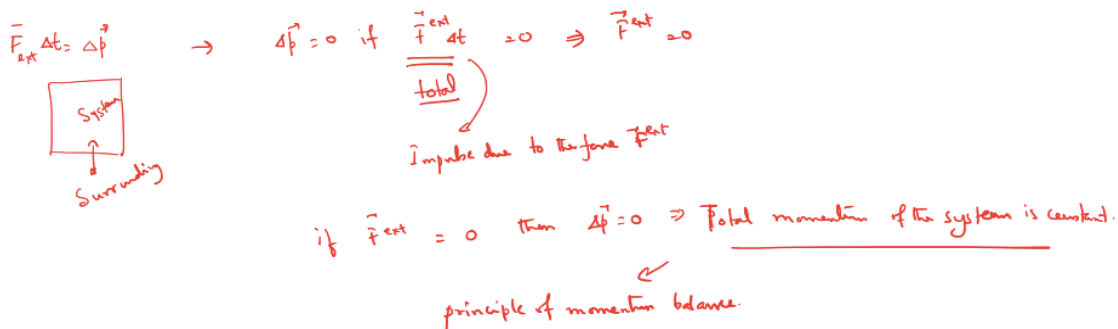 F⃗_ext Δt = Δp⃗ → Δp⃗ = 0 if F⃗^ext Δt = 0 ⇒ F⃗^ext = 0
total
System
Impulse due to the force F⃗^ext
Surrunding
if F⃗^ext = 0 then Δp⃗ = 0 ⇒ Total momentum of the system is constant.
principle of momentum balance.